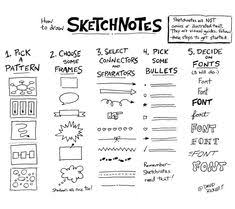 How
to draw
SKETCHNOTES
Sketchnotes are NOT
comics or illustrated text.
They are visual guides. Follow
these steps to get started.
1. PICK
A
PATTERN
2. CHOOSE
SOME
FRAMES
Shadows are nice too!
3. SELECT
CONNECTORS
AND
SEPARATORS
4. PICK
SOME
BULLETS
Remember-
Sketchnotes
need text!
5. DECIDE
ON
FONTS
(3 will do)
Font
Font
FONT
Font
FONT
FONT
FONT
FONT